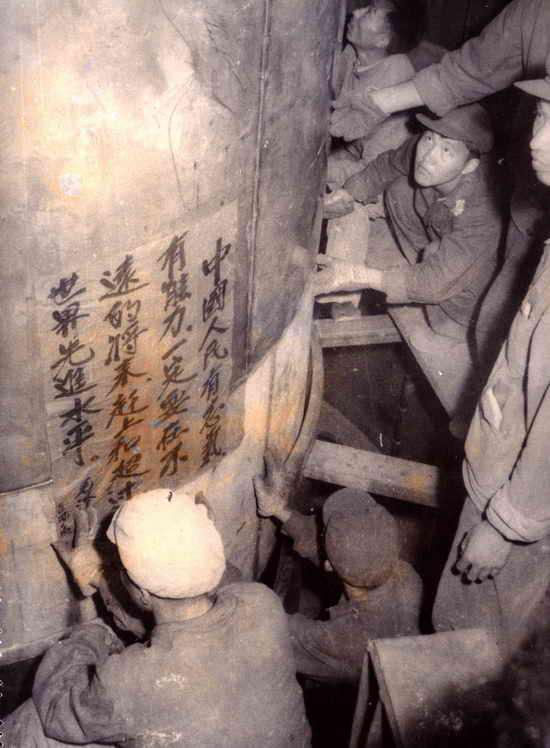 中國人民有志氣
有能力,一定要在不
遠的將来,趕上和超过
世界先進水平.